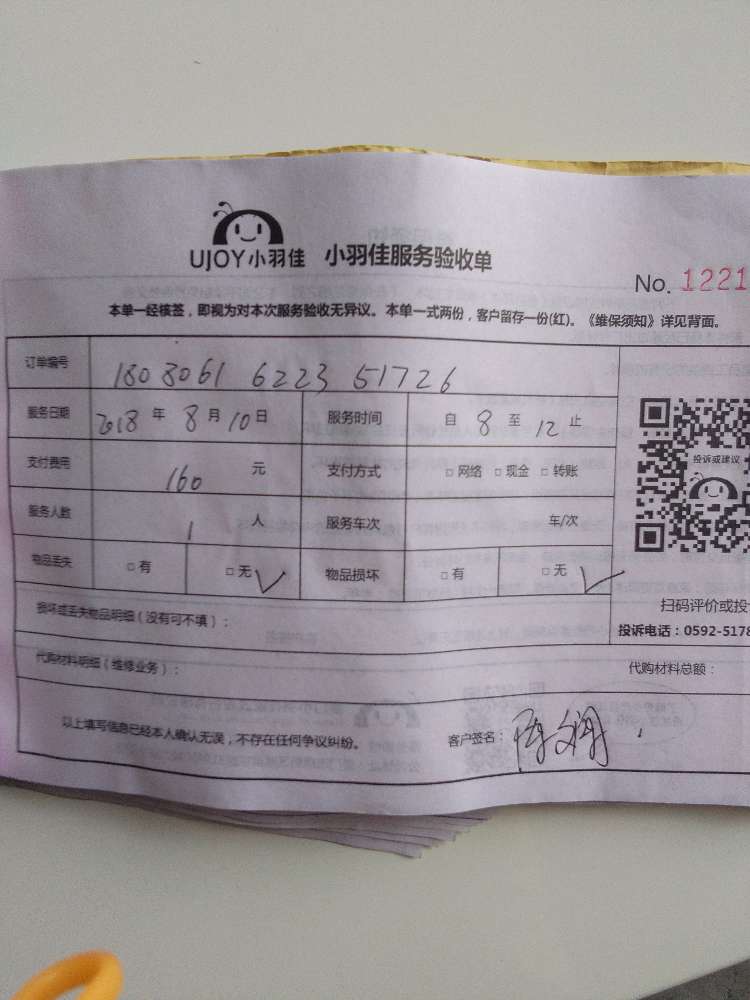 UJOY小羽佳 小羽佳服务验收单
No. 1221
本单一经核签，即视为对本次服务验收无异议。本单一式两份，客户留存一份(红)。《维保须知》详见背面。
订单编号 180 8061 6223 51726
服务日期 2018 年 8 月 10 日 服务时间 自 8 至 12 止
支付费用 160 元 支付方式 □ 网络 □ 现金 □ 转账
投诉或建议
服务人数 1 人 服务车次 车/次
物品丢失 □ 有 □ 无 ✓ 物品损坏 □ 有 □ 无 ✓
扫码评价或投
损坏或丢失物品明细（没有可不填）：
投诉电话：0592-5178
代购材料明细（维修业务）： 代购材料总额：
以上填写信息已经本人确认无误，不存在任何争议纠纷。 客户签名：